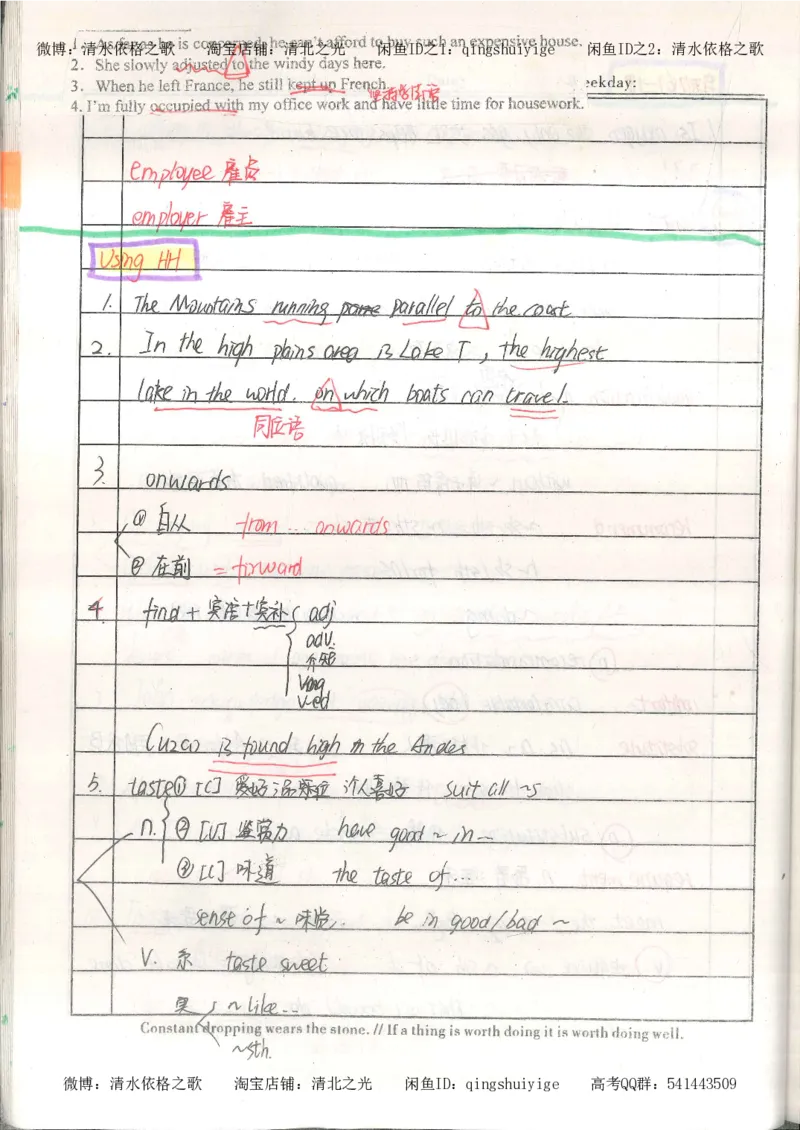 微博：清水依格之歌 淘宝店铺：清北之光 闲鱼ID之1：qingshuiyige 闲鱼ID之2：清水依格之歌
1. As far as he is concerned, he can't afford to buy such an expensive house.
2. She slowly adjusted to the windy days here.
3. When he left France, he still kept up French.
eekday:
4. I'm fully occupied with my office work and have little time for housework.
employee 雇员
employer 雇主
Using
1. The Mountains running parallel to the coast
2. In the high plains area is Lake T, the highest
lake in the world. on which boats can travel.
同位语
3. onwards
① 自从 from ... onwards
② 在前 = forward
4. find + 宾语 + 宾补 adj
adv.
介短
Ving
V-ed
Cuzco is found high in the Andes
5. taste ① [C] 爱好 个人喜好 suit all ~s
n. ② [U] 鉴赏力 have good ~ in...
③ [C] 味道 the taste of ...
sense of ~ 味觉.. be in good/bad ~
V. 系 taste sweet
~ like...
Constant dropping wears the stone. // If a thing is worth doing it is worth doing well.
~sth.
微博：清水依格之歌 淘宝店铺：清北之光 闲鱼ID：qingshuiyige 高考QQ群：541443509